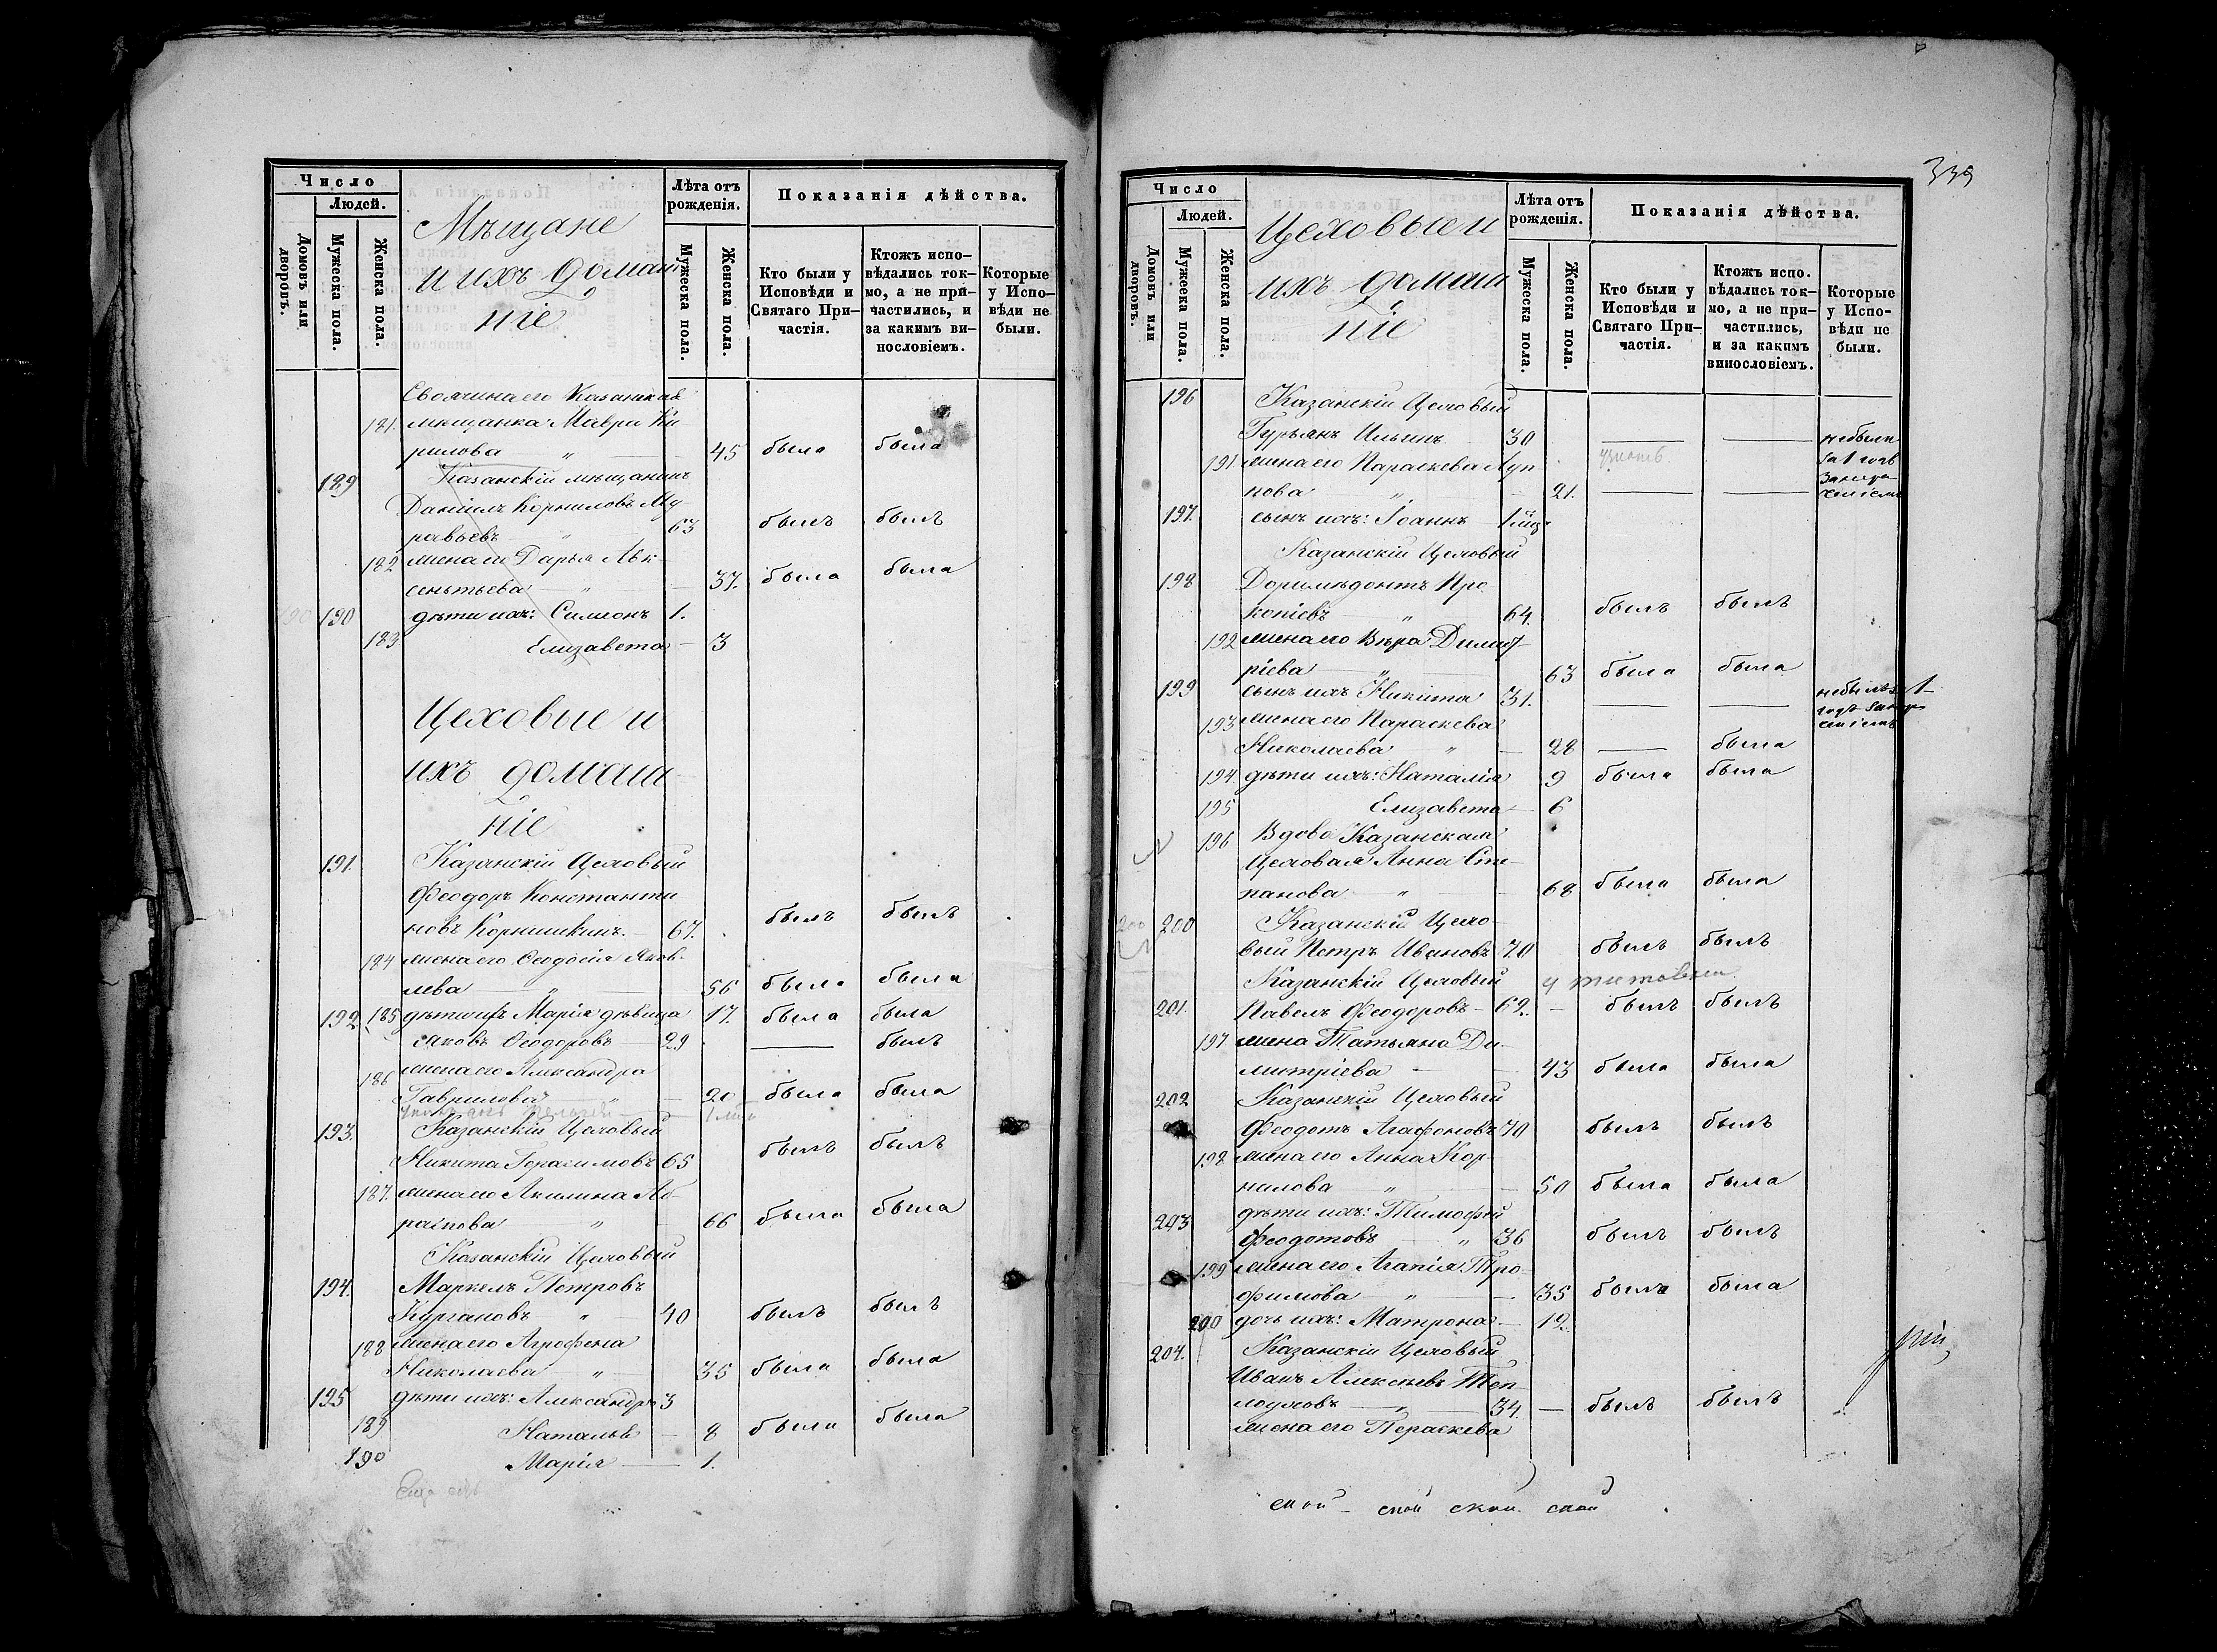 Число
Людей.
Домовъ или дворовъ.
Мужеска пола.
Женска пола.
Мѣщане
и ихъ домаш
ніе
Лѣта отъ рожденія.
Мужеска пола.
Женска пола.
Показанія дѣйства.
Кто были у Исповѣди и Святаго Причастія.
Ктожъ исповѣдались токмо, а не причастились, и за какимъ винословіемъ.
Которые у Исповѣди не были.
Своячина его Казанская
181. мѣщанка Мавра Ки-
рилова " 45 была была
189 Казанскій мѣщанинъ
Даніилъ Корниловъ Му
равьевъ " 63 былъ былъ
182 жена его Дарья Авк-
сентьева " 37. была была
190 190 дѣти ихъ: Симеонъ 1.
183. Елизавета 3
Цеховые и
ихъ домаш
ніе
191. Казанскій Цеховый
Феодоръ Константи
новъ Корнишкинъ. 67. былъ былъ
184 жена его Ѳеодосія Яков-
лева " 56 была была
192 185 дѣти ихъ Марія дѣвица 17. была была
Яковъ Ѳеодоровъ 29 былъ
186 жена его Александра
Гаврилова " 20 была была
193. Казанскій Цеховый
Никита Герасимовъ 65 былъ былъ
187. жена его Акилина Аб-
раімова " 66 была была
Казанскій Цеховый
194. Маркелъ Петровъ
Кургановъ " 40 былъ былъ
188 жена его Агрофена
Николаева " 35 была была
195 дѣти ихъ: Александръ 3
189 Наталья 8 была была
190 Марія 1.
Еще
339
Число
Людей.
Домовъ или дворовъ.
Мужеска пола.
Женска пола.
Цеховые и
ихъ домаш
ніе
Лѣта отъ рожденія.
Мужеска пола.
Женска пола.
Показанія дѣйства.
Кто были у Исповѣди и Святаго Причастія.
Ктожъ исповѣдались токмо, а не причастились, и за какимъ винословіемъ.
Которые у Исповѣди не были.
196 Казанскій Цеховый
Гурьянъ Ильинъ 30 небыли
191. жена его Параскева Луп за 1 годъ
пова " 21.
197. сынъ ихъ: Іоаннъ 1
Казанскій Цеховый
198 Доримедонтъ Про
копіевъ " 64. былъ былъ
192 жена его Вѣра Димит-
ріева " 63 была была
199 сынъ ихъ Никита 31. небылъ 1
193 жена его Параскева
Николаева " 28 была
194 дѣти ихъ: Наталія 9 была была
195 Елизавета 6
196 Вдова Казанская
Цеховая Анна Сте-
панова " 68 была была
200 200 Казанскій Цехо-
вый Петръ Ивановъ 70 былъ былъ
Казанскій Цеховый
201. Павелъ Феодоровъ 62. былъ былъ
197 жена Татьяна Ди-
митріева 43 была была
202 Казанскій Цеховый
Феодотъ Агафоновъ 70 былъ былъ
198 жена его Анна Кор-
нилова " 50 была была
203 дѣти ихъ: Тимофей
Феодотовъ " 36 былъ былъ
199 жена его Агапія Тро-
фимова " 35 была была
200 дочь ихъ: Матрона 12.
204. Казанскій Цеховый
Иванъ Алексѣевъ Теп-
лоуховъ " 34. былъ былъ
жена его Параскева
ской ской ской